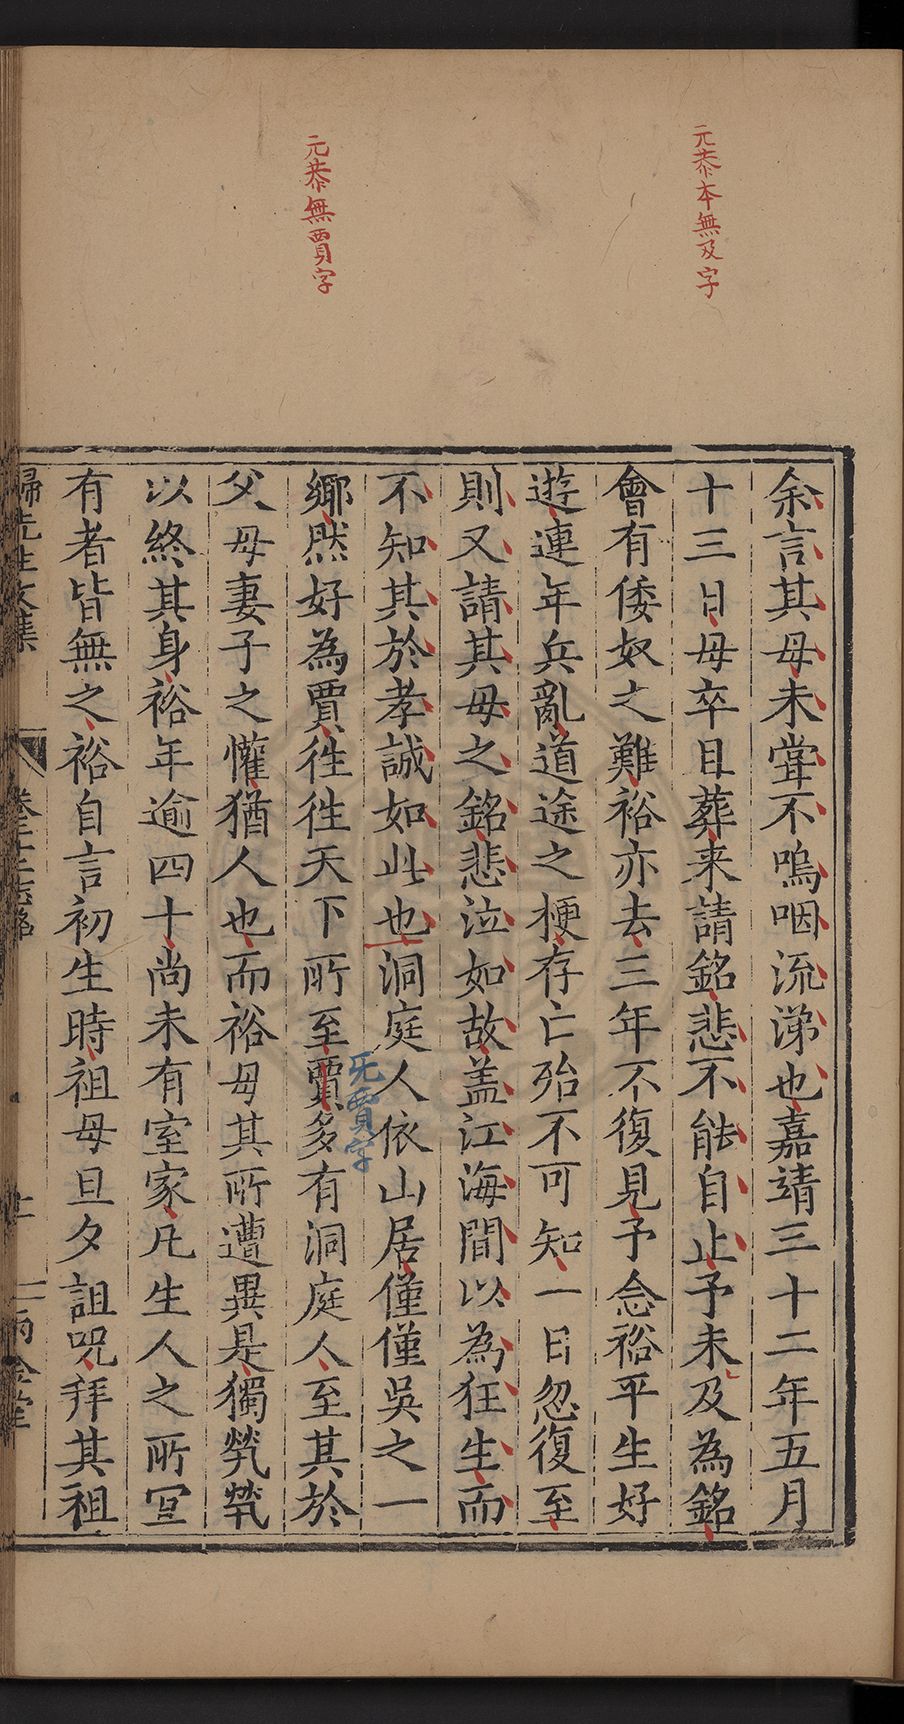 元恭本無及字
元恭無賈字
余言其母未嘗不嗚咽流涕也嘉靖三十二年五月
十三日母卒且葬来請銘悲不能自止予未及為銘
會有倭奴之難裕亦去三年不復見予念裕平生好
遊連年兵亂道途之梗存亡殆不可知一日忽復至
則又請其母之銘悲泣如故盖江海間以為狂生而
不知其於孝誠如此也洞庭人依山居僅僅吳之一
鄉然好為賈徃徃天下所至賈多有洞庭人至其於
无賈字
父母妻子之懽猶人也而裕母其所遭異是獨煢煢
以終其身裕年逾四十尚未有室家凡生人之所宜
有者皆無之裕自言初生時祖母旦夕詛呪拜其祖
歸先生文集
雨金堂